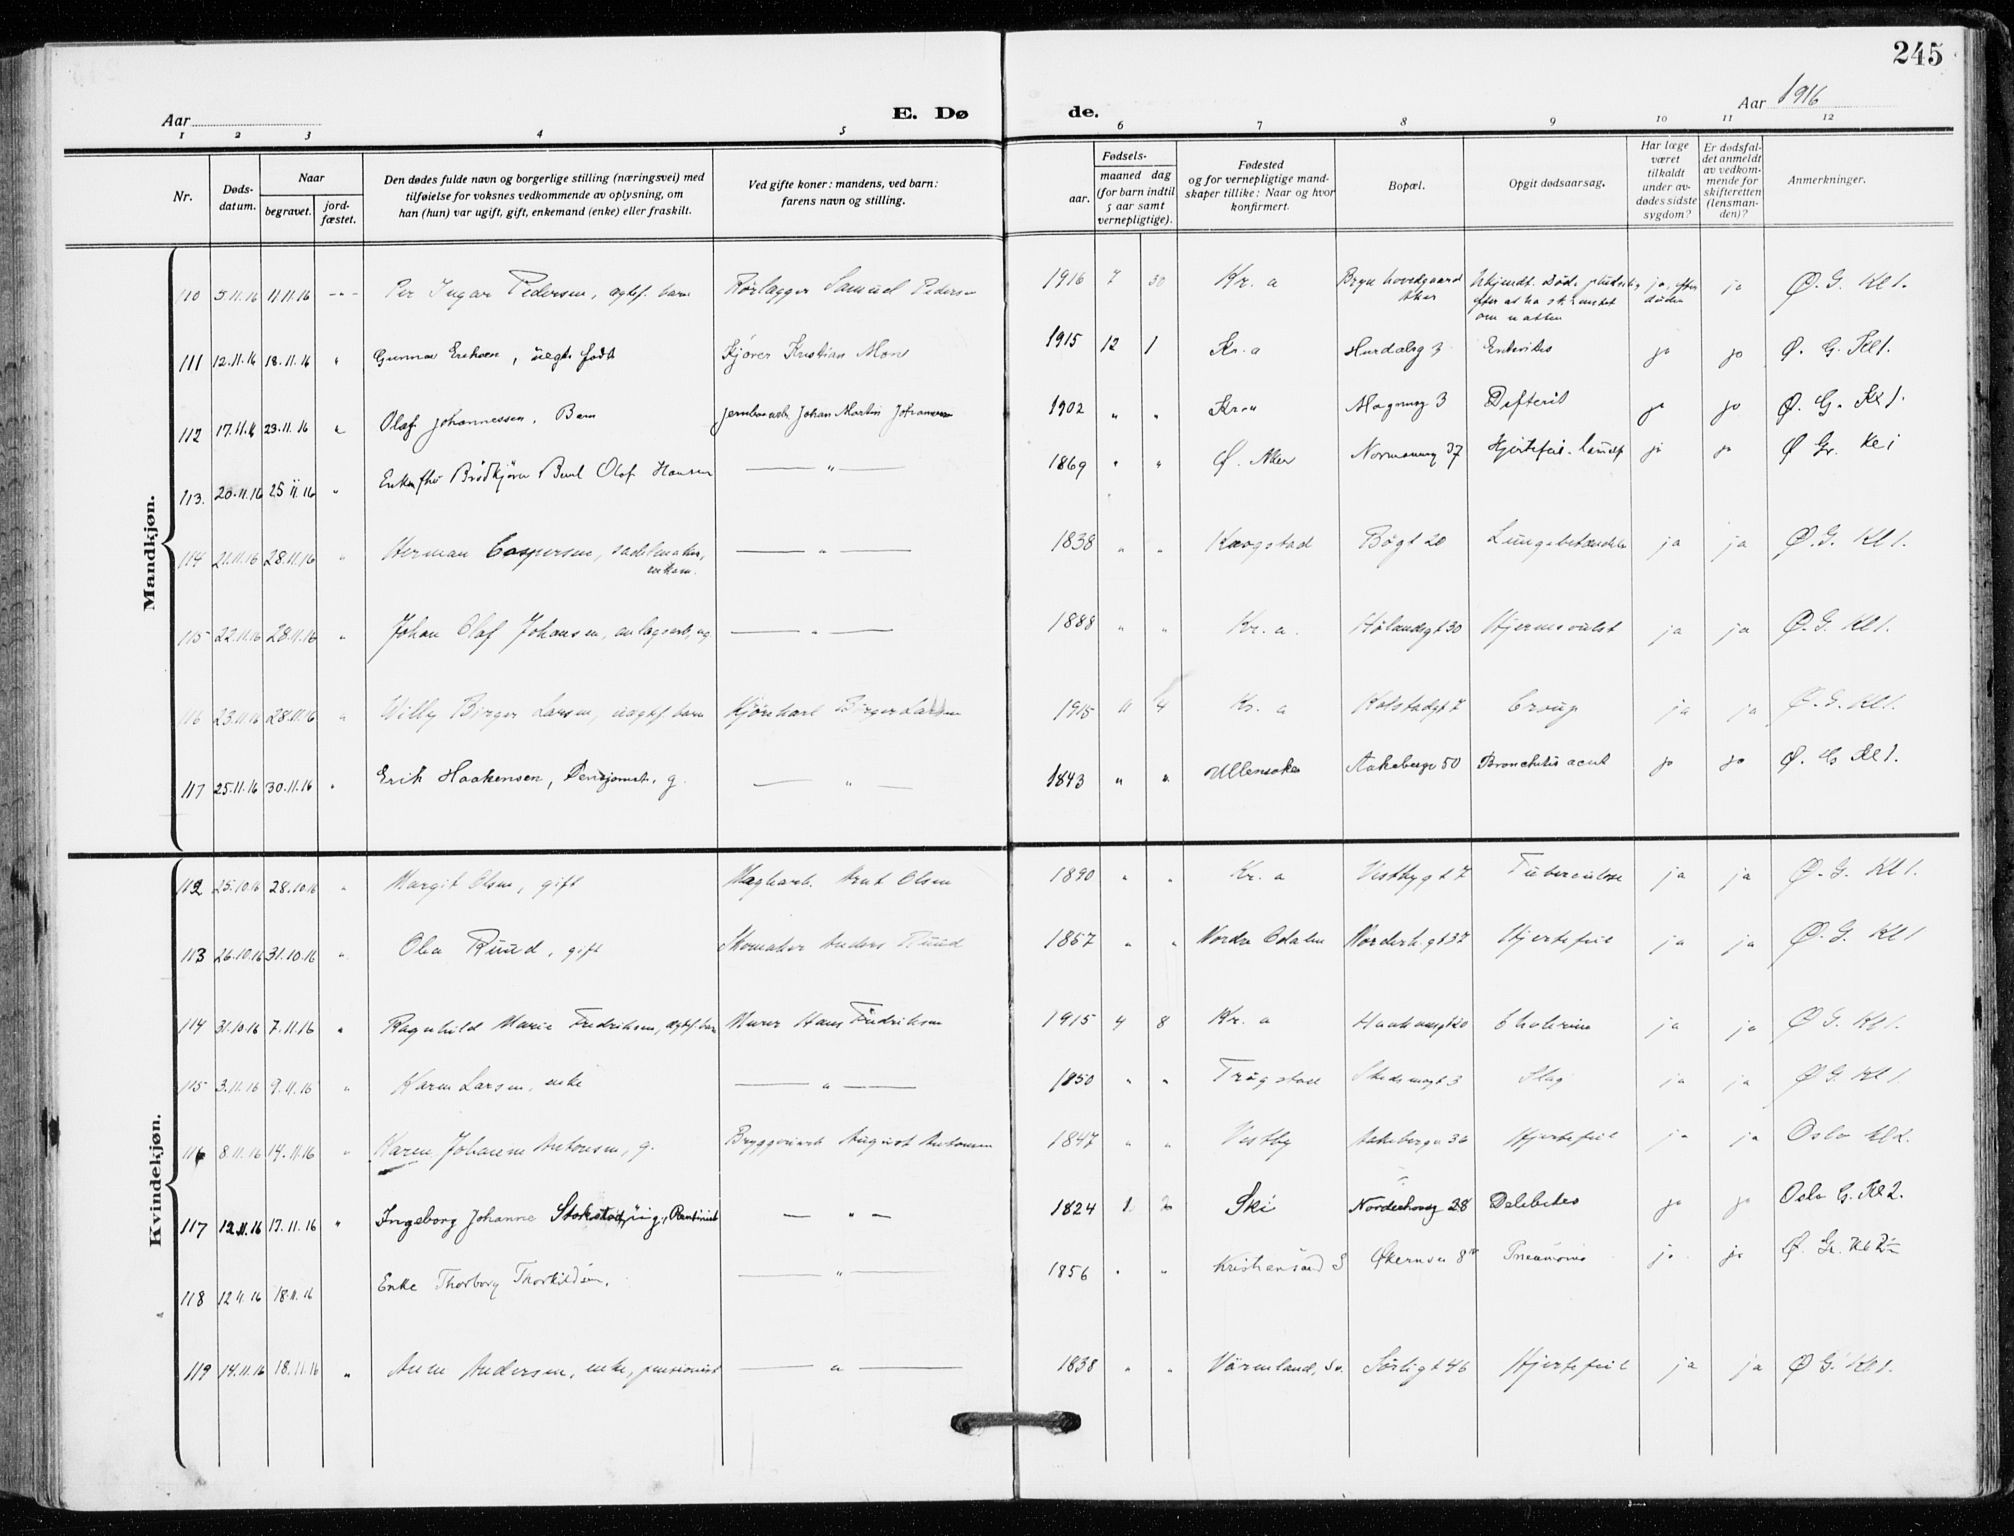 245
Aar
E. Dø
de.
Aar 1916
1 2 3 4 5 6 7 8 9 10 11 12
Nr.
Døds-
datum.
Naar
begravet.
jord-
fæstet.
Den dødes fulde navn og borgerlige stilling (næringsvei) med
tilføielse for voksnes vedkommende av oplysning, om
han (hun) var ugift, gift, enkemand (enke) eller fraskilt.
Ved gifte koner: mandens, ved barn:
farens navn og stilling.
Fødsels-
aar.
maaned dag
(for barn indtil
5 aar samt
vernepligtige).
Fødested
og for vernepligtige mand-
skaper tillike: Naar og hvor
konfirmert.
Bopæl.
Opgit dødsaarsag.
Har læge
været
tilkaldt
under av-
dødes sidste
sygdom?
Er dødsfal-
det anmeldt
av vedkom-
mende for
skifteretten
(lensman-
den)?
Anmerkninger.
Mandkjøn.
110 5.11.16 11.11.16 -"- Per Ingar Pedersen, ægtef. barn Rørlægger Samuel Pedersen 1916 7 30 Kr. a Bryn hovedgaard Ukjendt. Døde pludselig ja, efter ja Ø. G. Kl 1.
Aker efter at ha skumtet døden
om natten
111 12.11.16 18.11.16 " Gunnar Eriksen, uegte født Kjører Kristian Moen 1915 12 1 Kr. a Hurdalsg 3 Enteritis ja ja Ø. G. Kl 1.
112 17.11.16 23.11.16 " Olaf Johannessen, Barn Jernbanearb. Johan Martin Johannesen 1902 " " Kr a Magnusg 3 Difterit ja ja Ø. G. Kl 1.
113. 20.11.16 25 11.16 " Brødkjører Bernt Olaf Hansen — " — 1869 " " Ø. Aker Normannsg 37 Hjertefeil. ja ja Ø Gr. Kl 1
114 21.11.16 28.11.16 " Herman Caspersen, sadelmaker, — " — 1838 " " Krogstad Bøgt 20 Lungebetændelse ja ja Ø. G. Kl 1.
enkem.
115 22.11.16 28.11.16 " Johan Olaf Johansen, anlægsarb, ug — " — 1888 " " Kr. a. Hølandsgt 30 Hjernesvulst ja ja Ø. G. Kl 1.
116 23.11.16 28.11.16 " Willy Birger Larsen, uægtef. barn Kjørekarl Birger Larsen 1915 11 4 Kr. a Kolstadgt 7 Croup ja ja Ø. G. Kl 1.
117 25.11.16 30.11.16 " Erik Haakensen, Pensjonist, g. — " — 1843 " " Ullensaker Aakebergv 50 Bronchitis acut ja ja Ø. G Kl 1.
Kvindekjøn.
112 25.10.16 28.10.16 " Margit Olsen, gift Magharb. Arnt Olsen 1890 " " Kr. a Vestbygt 7 Tuberculose ja ja Ø. G. Kl 1.
113 26.10.16 31.10.16 " Olea Ruud, gift Skomaker Anders Ruud 1857 " " Nordre Odalen Norderh.gt 37 Hjertefeil ja ja Ø. G. Kl 1
114 31.10.16 7.11.16 " Ragnhild Marie Fredriksen, ægtef. barn Murer Hans Fredriksen 1915 4 8 Kr. a Haakonsgt 20 Cholerine ja ja Ø G. Kl 1.
115 3.11.16 9.11.16 " Karen Larsen, enke — " — 1850 " " Trøgstad Skedsmogt 3 Slag ja ja Ø G. Kl 1.
116 8.11.16 14.11.16 " Karen Johanne Antonsen, g. Bryggeriarb August Antonsen 1847 " " Vestby Aakebergv 36 Hjertefeil ja ja Oslo Kl 2.
117 12.11.16 17.11.16 " Ingeborg Johanne Stokstad, ug., Rentenist — " — 1824 1 2 Ski Norderhovsg 28 Delebites ja ja Oslo G. Kl 2.
118 12.11.16 18.11.16 Enke Thorborg Thorkildsen. — " — 1856 " " Kristiansand S Økernv 8 Pneumoni ja ja Ø. Gr. Kl
119 14.11.16 18.11.16 " Anne Andersen, enke, pensionist — " — 1838 " " Värmland, Sv. Sørligt 46 Hjertefeil ja ja Ø G. Kl 1.